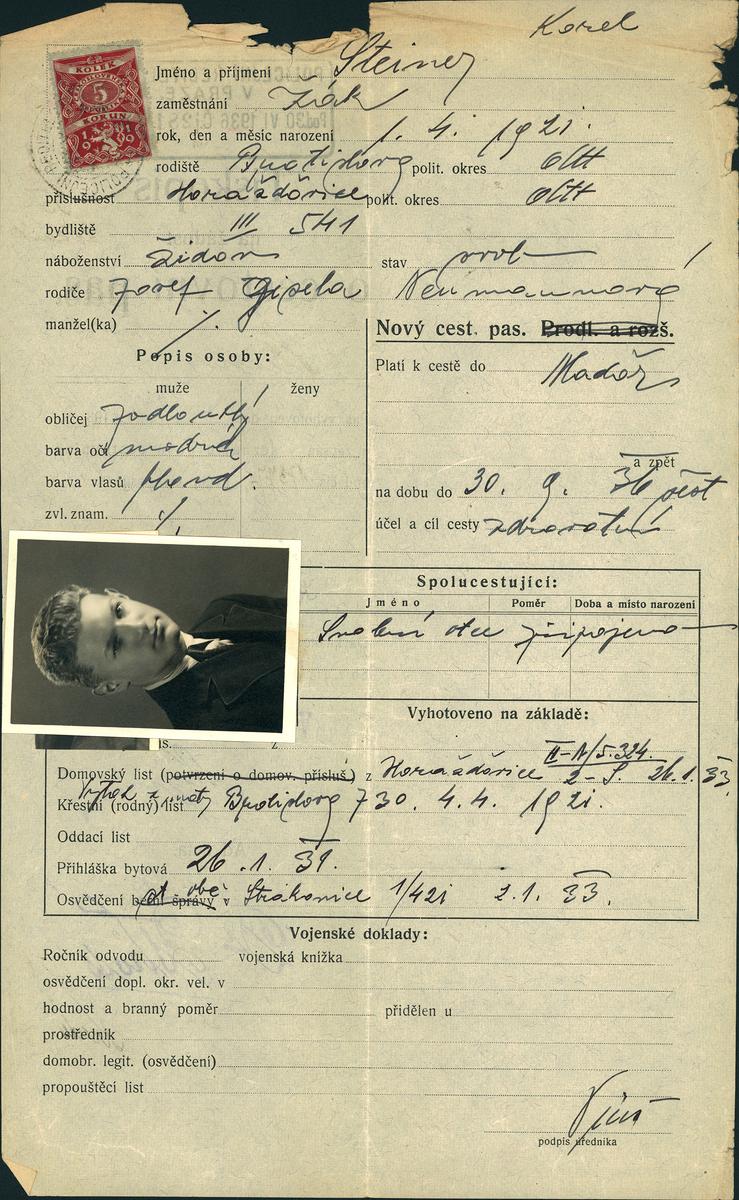 Karel
Jméno a příjmení Steiner
zaměstnání žák
rok, den a měsíc narození 1. 4. 1921.
rodiště polit. okres
příslušnost Horažďovice polit. okres
bydliště III 541
náboženství židov stav svob
rodiče Josef Gisela Neumannová
manžel(ka) ./.
Nový cest. pas. Prodl. a rozš.
Popis osoby:
Platí k cestě do Maďar
muže ženy
obličej podlouhlý
barva očí modrá
barva vlasů blond.
a zpět
na dobu do 30. 9. 36
zvl. znam. ./.
účel a cíl cesty zdravotní
KOLEK
5
KORUN
Spolucestující:
Jméno Poměr Doba a místo narození
otce připojeno
Vyhotoveno na základě:
II-IV/5.324.
Domovský list (potvrzení o domov. přísluš.) z Horažďovice 26.1.33
Výtah z mat
Křestní (rodný) list 730. 4.4. 1921.
Oddací list
Přihláška bytová 26.1.31.
Osvědčení berní správy v Strakonice 1/421 2.1.33.
Vojenské doklady:
Ročník odvodu vojenská knížka
osvědčení dopl. okr. vel. v
hodnost a branný poměr přidělen u
prostředník
domobr. legit. (osvědčení)
propouštěcí list
podpis úředníka